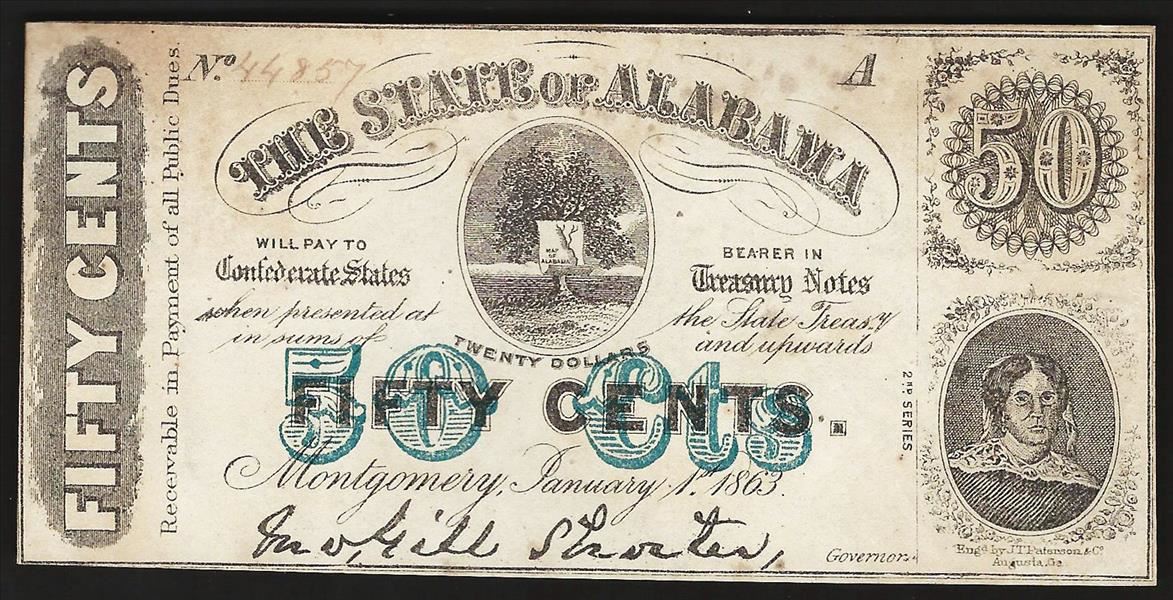 FIFTY CENTS
Receivable in Payment of all Public Dues.
No. 44857
A
THE STATE OF ALABAMA
50
WILL PAY TO
BEARER IN
MAP
OF
ALABAMA
Confederate States
Treasury Notes
when presented at
the State Treas.y
in sums of
TWENTY DOLLARS
and upwards
50 Cts
FIFTY CENTS.
2ND SERIES
Montgomery, January 1st 1863.
Jno. Gill Shorter,
Governor.
Engd. by J.T. Paterson & Co.
Augusta, Ga.